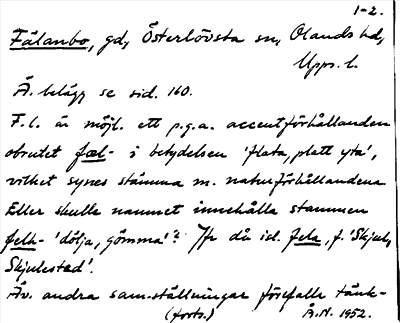 1-2.
Fälanbo, gd, Österlövsta sn, Olands hd,
Upps. l.
Ä. belägg se sid. 160.
F.l. är möjl. ett p.g.a. accentförhållanden
obrutet fæl- i betydelsen 'flata, platt yta',
vilket synes stämma m. naturförhållandena
Eller skulle namnet innehålla stammen
felh- 'dölja, gömma'? Jfr då isl. fela, f. 'Skjul,
Skjulestad'.
Äv. andra sam.ställningar förefalla tänk-
(forts.) Å.N. 1952.